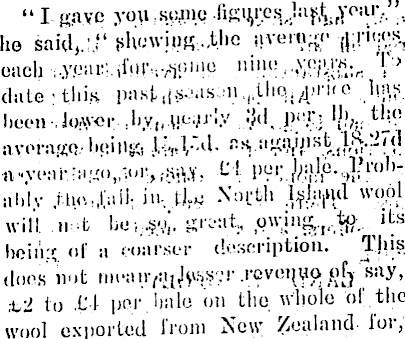 "I gave you some figures last year,"
he said, "shewing the average prices
each year for some nine years. To
date this past season the price has
been lower by nearly 3d per lb, the
average being d. as against 18.27d
a year ago, or, say, £4 per bale. Prob-
ably the fall in the North Island wool
will not be so great, owing to its
being of a coarser description. This
does not mean a lesser revenue of, say,
£2 to £4 per bale on the whole of the
wool exported from New Zealand for,